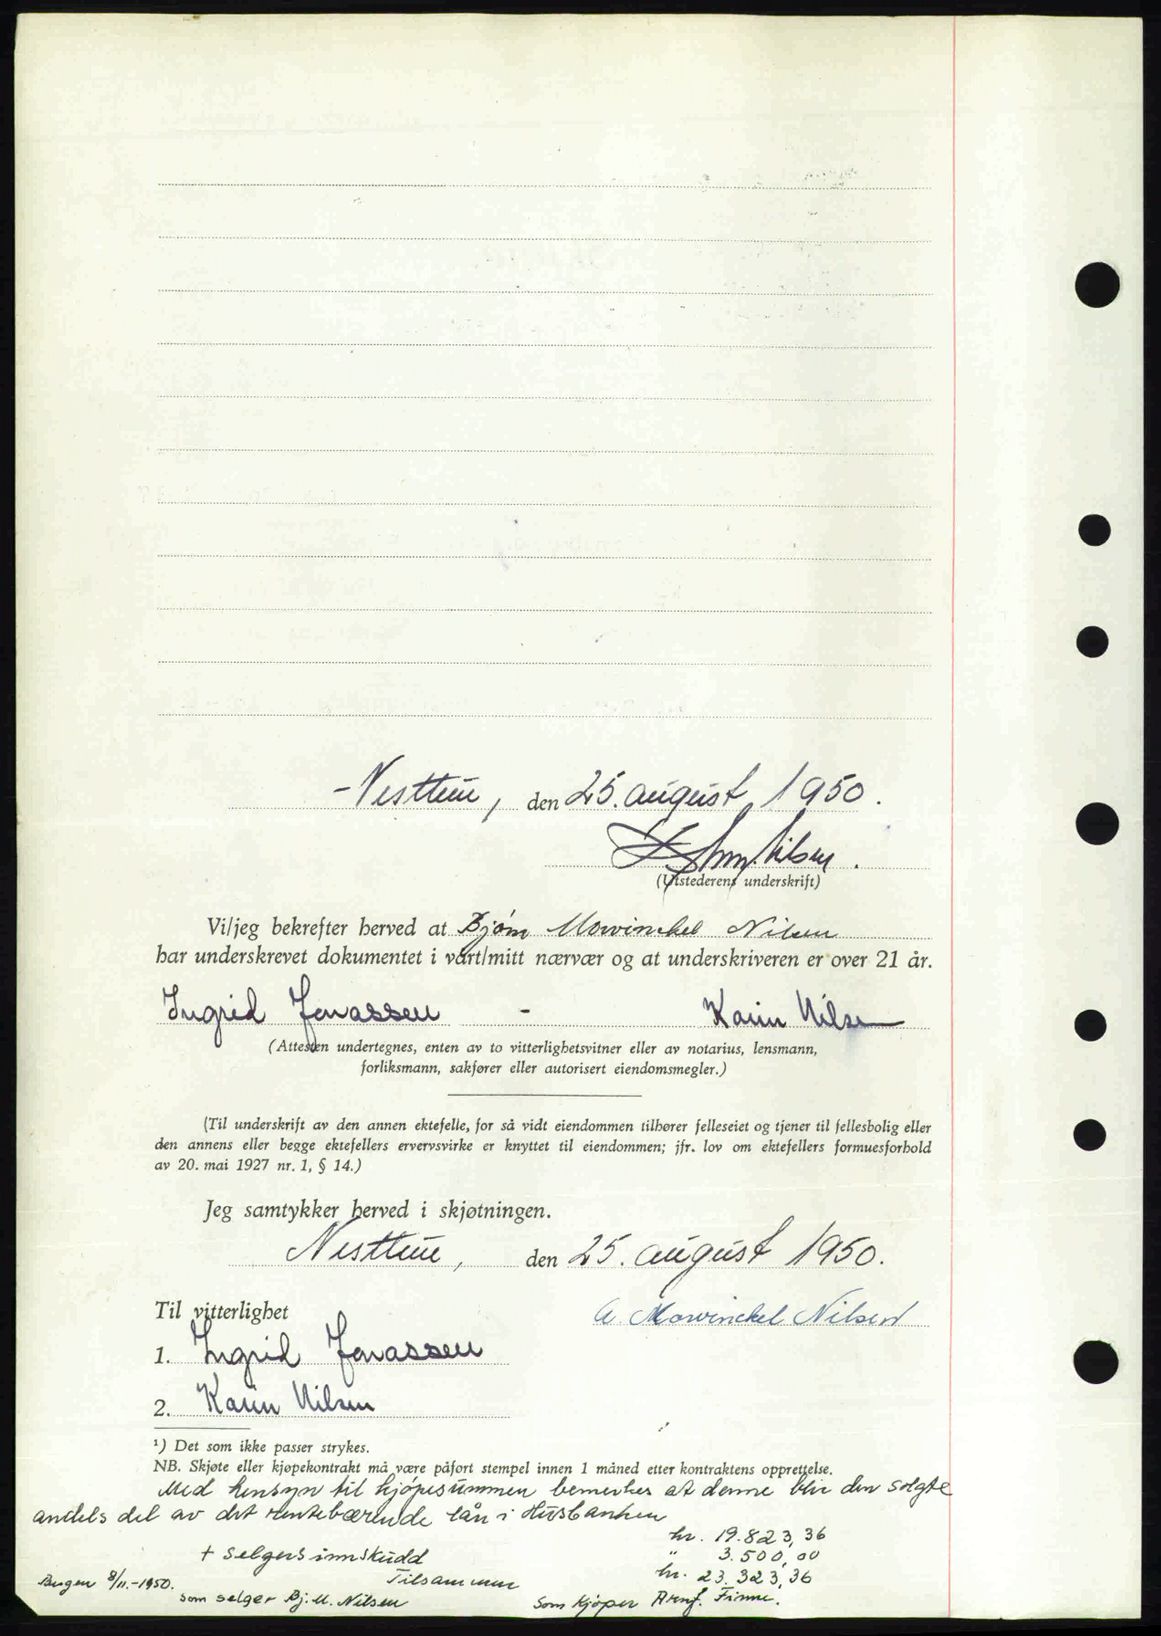 Nesttun, den 25. august 1950.
(Utstederens underskrift)
Vi/jeg bekrefter herved at Bjørn Mowinckel Nilsen
har underskrevet dokumentet i vårt/mitt nærvær og at underskriveren er over 21 år.
Ingrid Jonassen - Karin Nilsen
(Attesten undertegnes, enten av to vitterlighetsvitner eller av notarius, lensmann,
forliksmann, sakfører eller autorisert eiendomsmegler.)
(Til underskrift av den annen ektefelle, for så vidt eiendommen tilhører felleseiet og tjener til fellesbolig eller
den annens eller begge ektefellers ervervsvirke er knyttet til eiendommen; jfr. lov om ektefellers formuesforhold
av 20. mai 1927 nr. 1, § 14.)
Jeg samtykker herved i skjøtningen.
Nesttun, den 25. august 1950.
Til vitterlighet
A. Mowinckel Nilsen
1. Ingrid Jonassen
2. Karin Nilsen
¹) Det som ikke passer strykes.
NB. Skjøte eller kjøpekontrakt må være påført stempel innen 1 måned etter kontraktens opprettelse.
Med hensyn til kjøpesummen bemerkes at denne blir den solgte
andels del av det rentebærende lån i Husbanken
kr. 19.823,36
+ selgers innskudd " 3.500,00
Tilsammen kr. 23.323,36
Bergen 8/11.-1950.
som selger Bj. M. Nilsen Som kjøper Arnf. Finne.